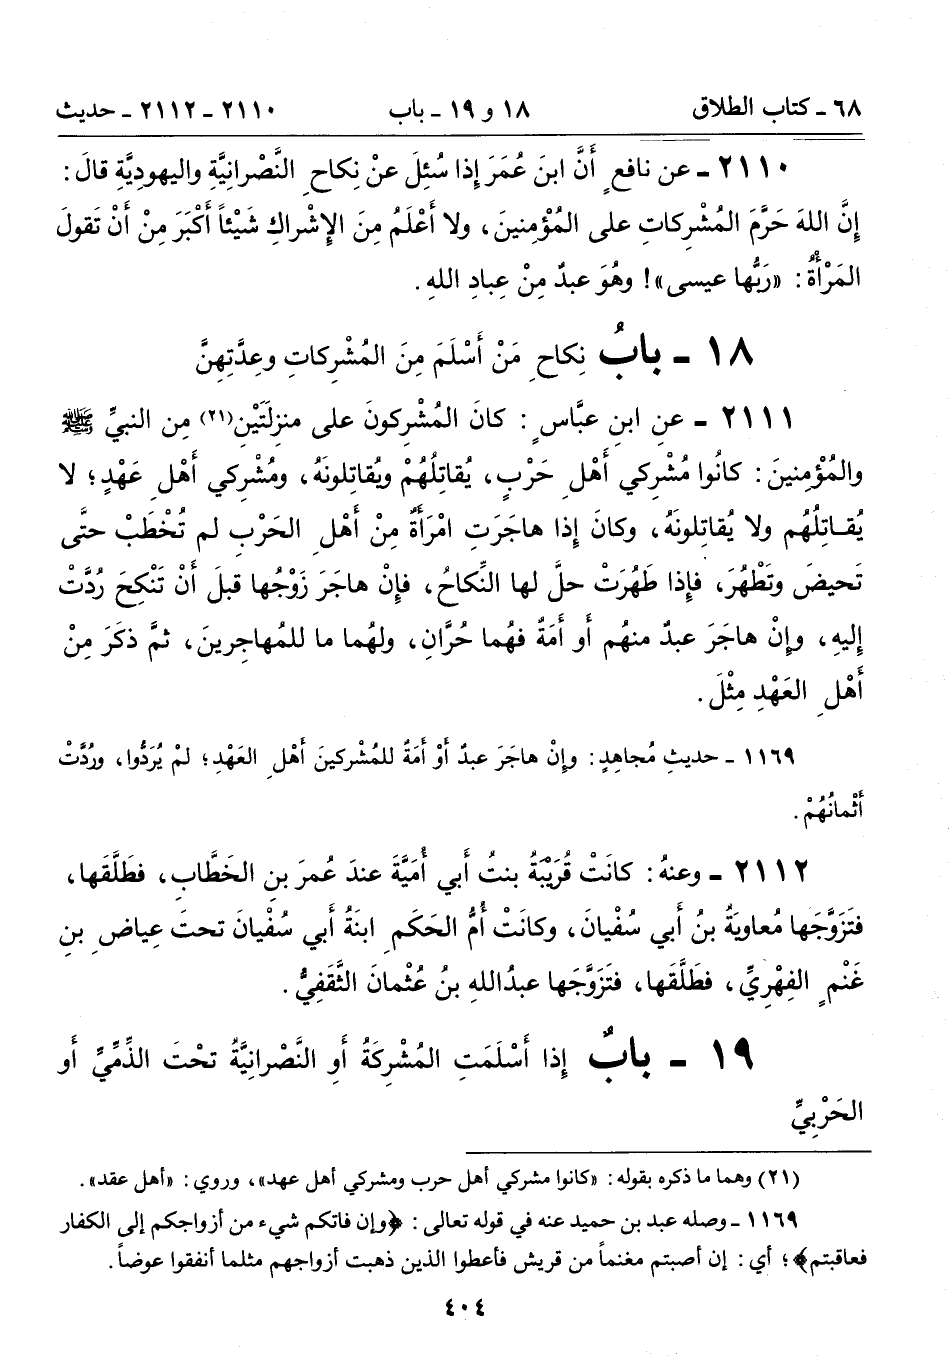 ٦٨ ـ كتاب الطلاق ١٨ و ١٩ ـ باب ٢١١٠ ـ ٢١١٢ ـ حديث
٢١١٠ ـ عن نافعٍ أَنَّ ابنَ عُمَرَ إذا سُئِلَ عنْ نِكاحِ النَّصْرانِيَّةِ واليهوديَّةِ قالَ:
إنَّ اللهَ حَرَّمَ المُشْرِكاتِ على المُؤْمِنينَ، ولا أَعْلَمُ مِنَ الإشْراكِ شَيْئاً أَكْبَرَ مِنْ أنْ تَقولَ
المَرْأَةُ: «رَبُّها عيسى»! وهُوَ عبدٌ مِنْ عِبادِ اللهِ.
١٨ ـ بابُ نِكاحِ مَنْ أَسْلَمَ مِنَ المُشْرِكاتِ وعِدَّتِهِنَّ
٢١١١ ـ عنِ ابنِ عبَّاسٍ: كانَ المُشْرِكونَ على منزِلَتَيْنِ(٢١) مِن النبيِّ ﷺ
والمُؤْمِنينَ: كانُوا مُشْرِكي أَهْلِ حَرْبٍ، يُقاتِلُهُمْ ويُقاتِلونَهُ، ومُشْرِكي أَهْلِ عَهْدٍ؛ لا
يُقاتِلُهُم ولا يُقاتِلونَهُ، وكانَ إذا هاجَرَتِ امْرَأَةٌ مِنْ أَهْلِ الحَرْبِ لم تُخْطَبْ حتَّى
تَحيضَ وتَطْهُرَ، فإذا طَهُرَتْ حلَّ لها النِّكاحُ، فإنْ هاجَرَ زَوْجُها قبلَ أَنْ تَنْكِحَ رُدَّتْ
إليهِ، وإنْ هاجَرَ عبدٌ منهُم أو أَمَةٌ فهُما حُرَّانِ، ولهُما ما للمُهاجرينَ، ثمَّ ذكَرَ مِنْ
أَهْلِ العَهْدِ مِثْلَ.
١١٦٩ ـ حديثِ مُجاهِدٍ: وإنْ هاجَرَ عبدٌ أَوْ أَمَةٌ للمُشْرِكينَ أَهْلِ العَهْدِ؛ لمْ يُرَدُّوا، ورُدَّتْ
أَثْمانُهُمْ.
٢١١٢ ـ وعنهُ: كانَتْ قُرَيْبَةُ بنتُ أَبي أُمَيَّةَ عندَ عُمرَ بنِ الخَطَّابِ، فطَلَّقَها،
فتَزَوَّجَها مُعاويَةُ بنُ أَبي سُفْيانَ، وكانَتْ أُمُّ الحَكَمِ ابنَةُ أَبي سُفْيانَ تحتَ عِياضِ بنِ
غَنْمٍ الفِهْرِيِّ، فطَلَّقَها، فتَزَوَّجَها عبدُاللهِ بنُ عُثْمانَ الثَّقَفِيُّ.
١٩ ـ بابٌ إذا أَسْلَمَتِ المُشْرِكَةُ أَوِ النَّصْرانِيَّةُ تحْتَ الذِّمِّيِّ أَو
الحَرْبِيِّ
(٢١) وهما ما ذكره بقوله: «كانوا مشركي أهل حرب ومشركي أهل عهد»، وروي: «أهل عقد».
١١٦٩ ـ وصله عبد بن حميد عنه في قوله تعالى: ﴿وإن فاتكم شيء من أزواجكم إلى الكفار
فعاقبتم﴾؛ أي: إن أصبتم مغنماً من قريش فأعطوا الذين ذهبت أزواجهم مثلما أنفقوا عوضاً.
٤٠٤